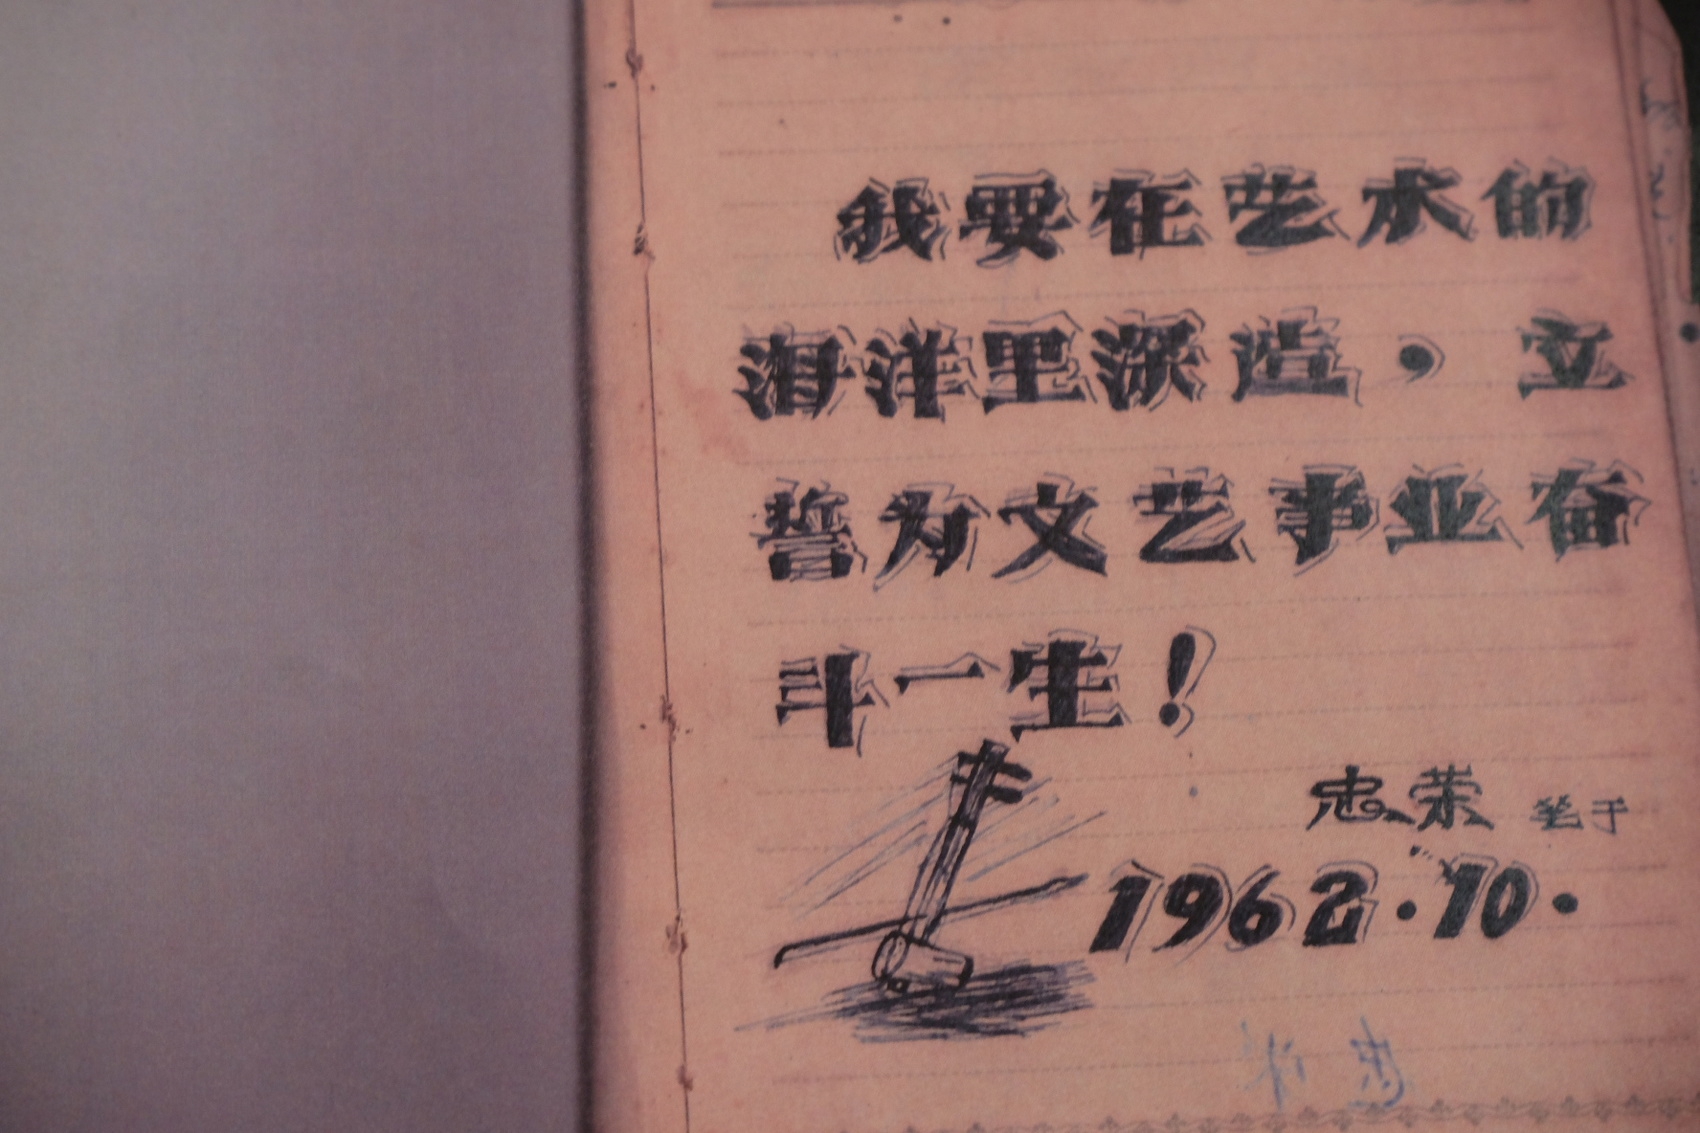 我要在艺术的
海洋里深造，立
誓为文艺事业奋
斗一生！
忠荣 笔于
1962·10·